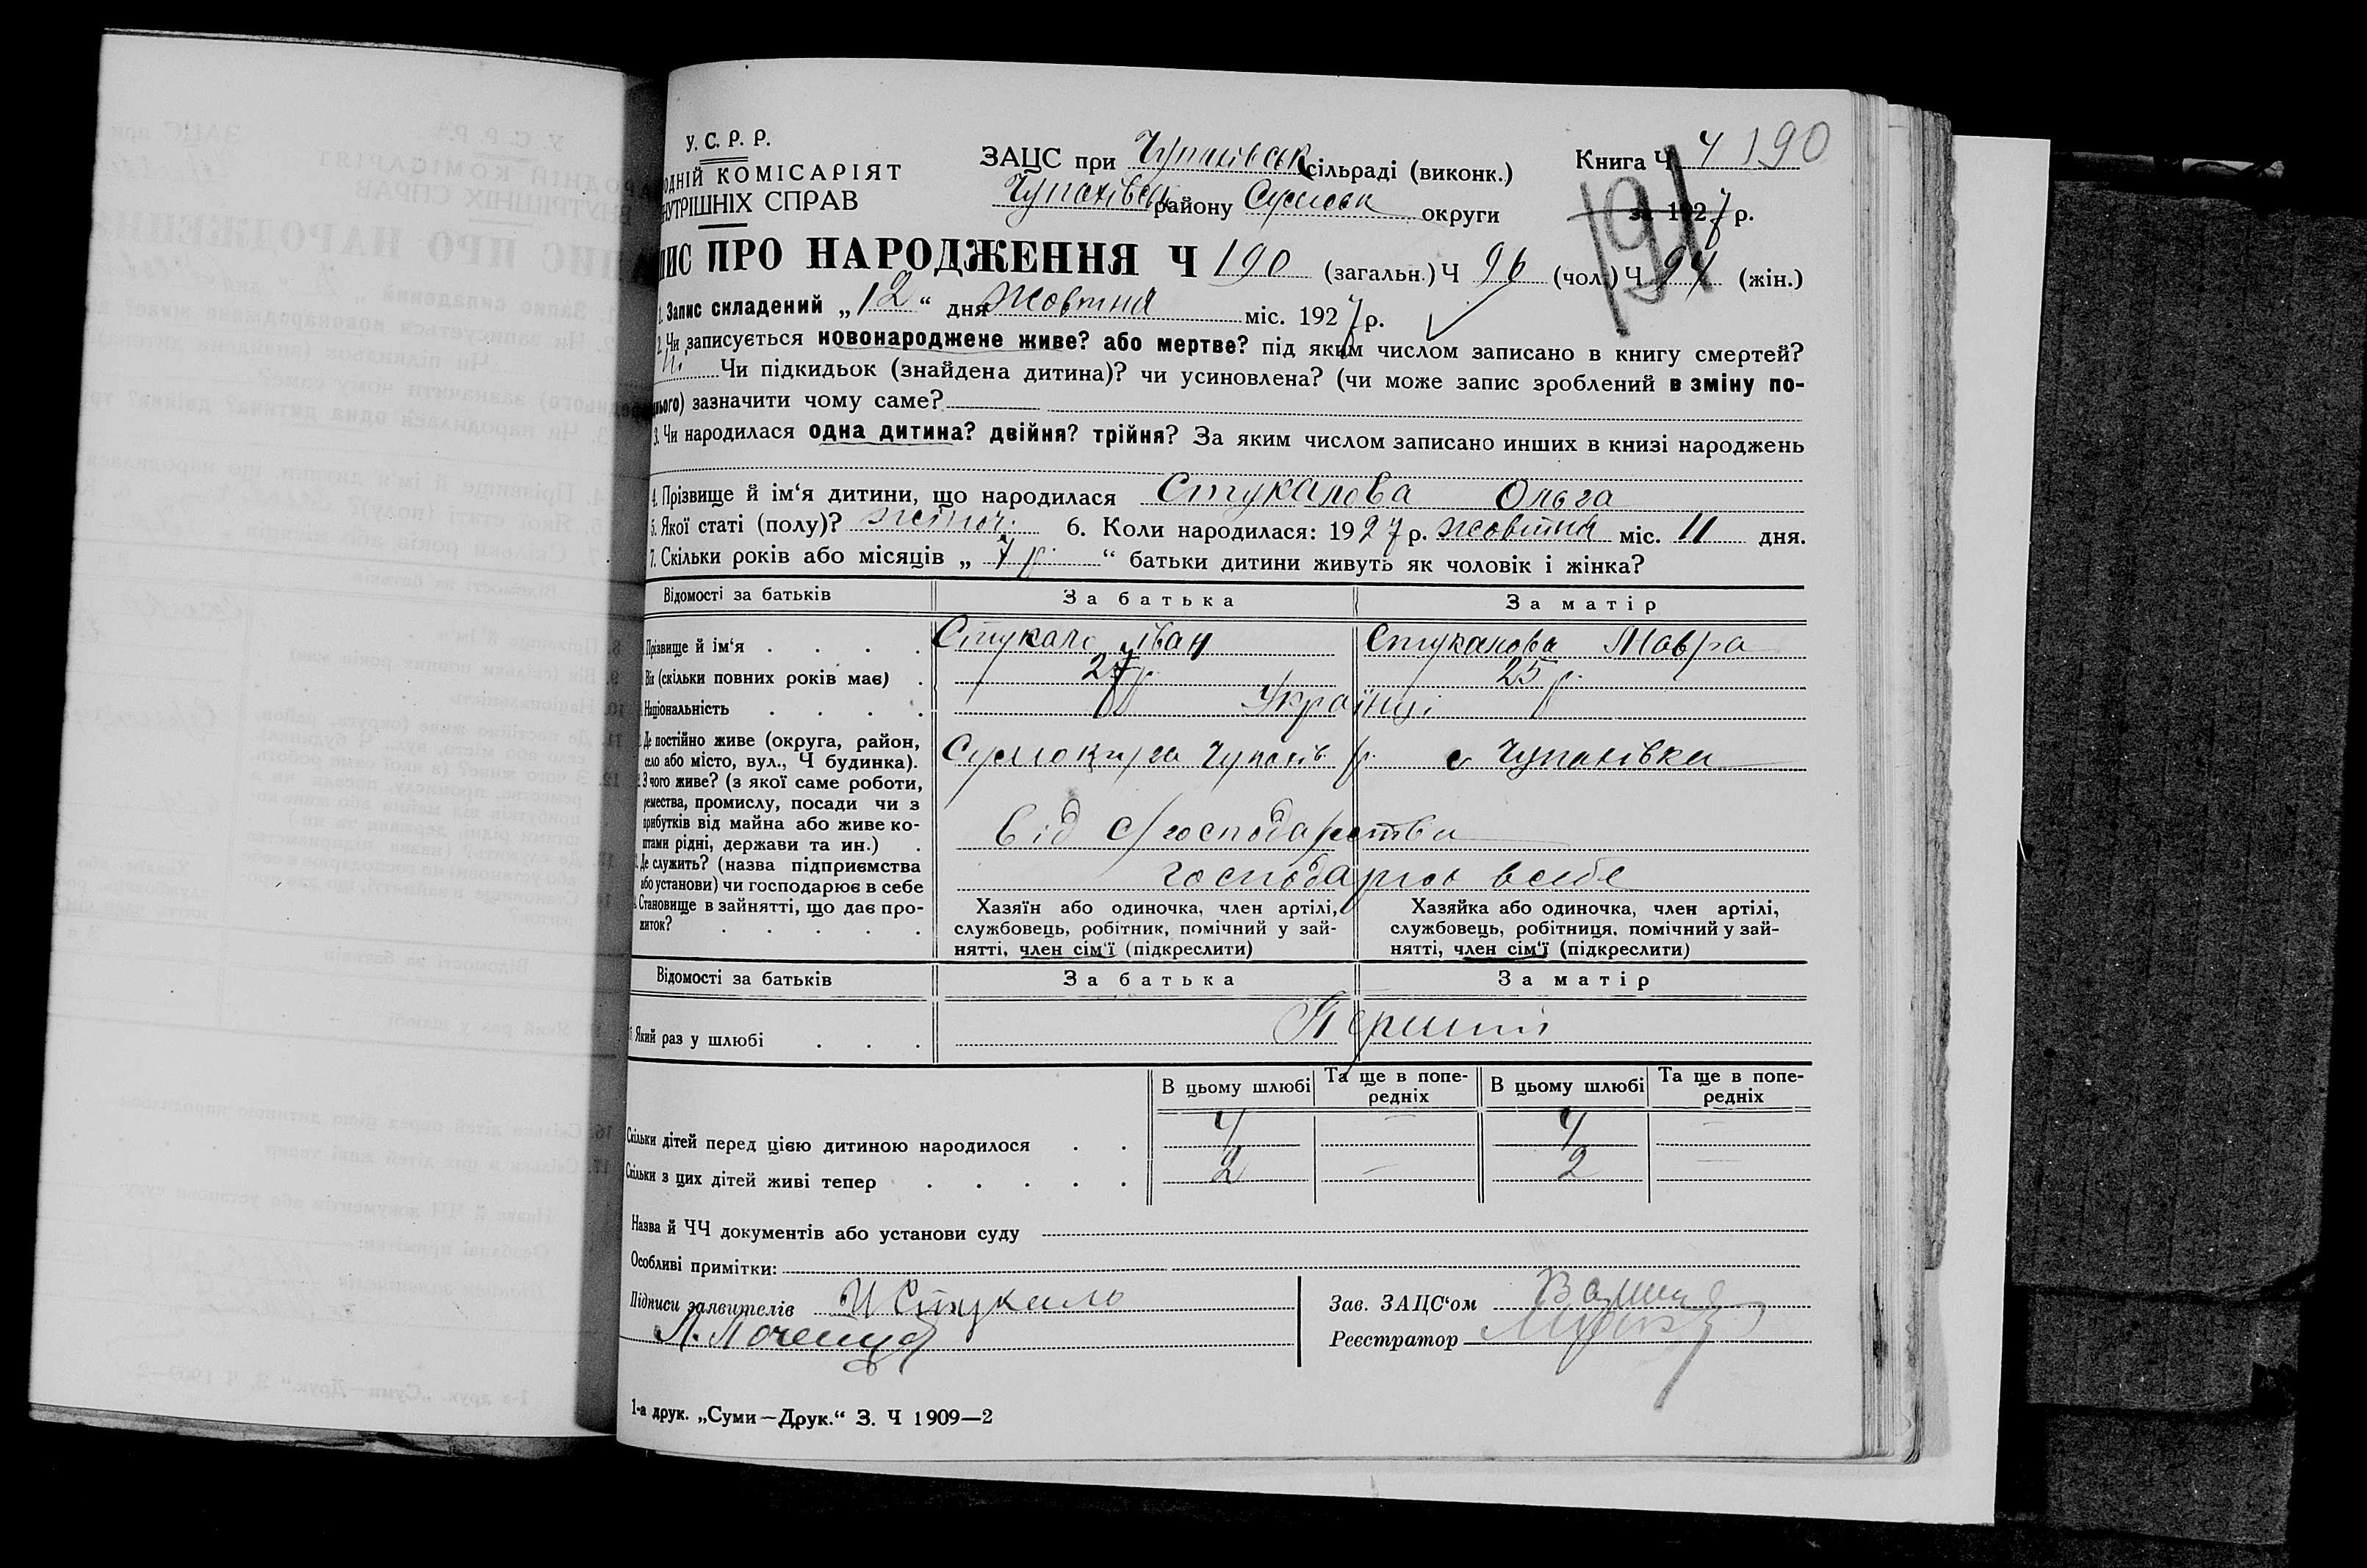 У. С. Р. Р.
ОДНІЙ КОМІСАРІЯТ
НУТРІШНІХ СПРАВ
ЗАЦС при Чупахівськ сільраді (виконк.)
Чупахівськ району Сумськ округи
Книга Ч 4 190
за 1927 р.
191
ПИС ПРО НАРОДЖЕННЯ Ч 190 (загальн.) Ч 96 (чол.) Ч 94 (жін.)
1. Запис складений „12“ дня Жовтня міс. 1927 р.
2. Чи записується новонароджене живе? або мертве? під яким числом записано в книгу смертей?
Ні Чи підкидьок (знайдена дитина)? чи усиновлена? (чи може запис зроблений в зміну по-
нього) зазначити чому саме?
3. Чи народилася одна дитина? двійня? трійня? За яким числом записано инших в книзі народжень
4. Прізвище й ім‘я дитини, що народилася Стукалова Ольга
5. Якої статі (полу)? жіноч. 6. Коли народилася: 1927 р. жовтня міс. 11 дня.
7. Скільки років або місяців „ 7 р. “ батьки дитини живуть як чоловік і жінка?
Відомості за батьків За батька За матір
Прізвище й ім‘я . . . . Стукало Іван Стукалова Мавра
Вік (скільки повних років має) . 27 р. 25 р.
Національність . . . . Українці
Де постійно живе (округа, район,
село або місто, вул., Ч будинка). Сумокруга Чупахів р. с Чупахівка
З чого живе? (з якої саме роботи,
ремества, промислу, посади чи з
прибутків від майна або живе ко-
штами рідні, держави та ин.) . Від с/господарства
Де служить? (назва підприємства
або установи) чи господарює в себе господарює в себе
Становище в зайнятті, що дає про-
житок? . . . . .
Хазяїн або одиночка, член артілі,
службовець, робітник, помічний у зай-
нятті, член сім‘ї (підкреслити)
Хазяйка або одиночка, член артілі,
службовець, робітниця, помічний у зай-
нятті, член сім‘ї (підкреслити)
Відомості за батьків За батька За матір
Який раз у шлюбі . . . Перший
В цьому шлюбі Та ще в попе-редніх В цьому шлюбі Та ще в попе-редніх
Скільки дітей перед цією дитиною народилося . . 4 — 4 —
Скільки з цих дітей живі тепер . . . . . 2 — 2 —
Назва й ЧЧ документів або установи суду
Особливі примітки:
Підписи заявителів И Стукало
Зав. ЗАЦС‘ом
Реєстратор
1-а друк. „Суми—Друк.“ З. Ч 1909—2